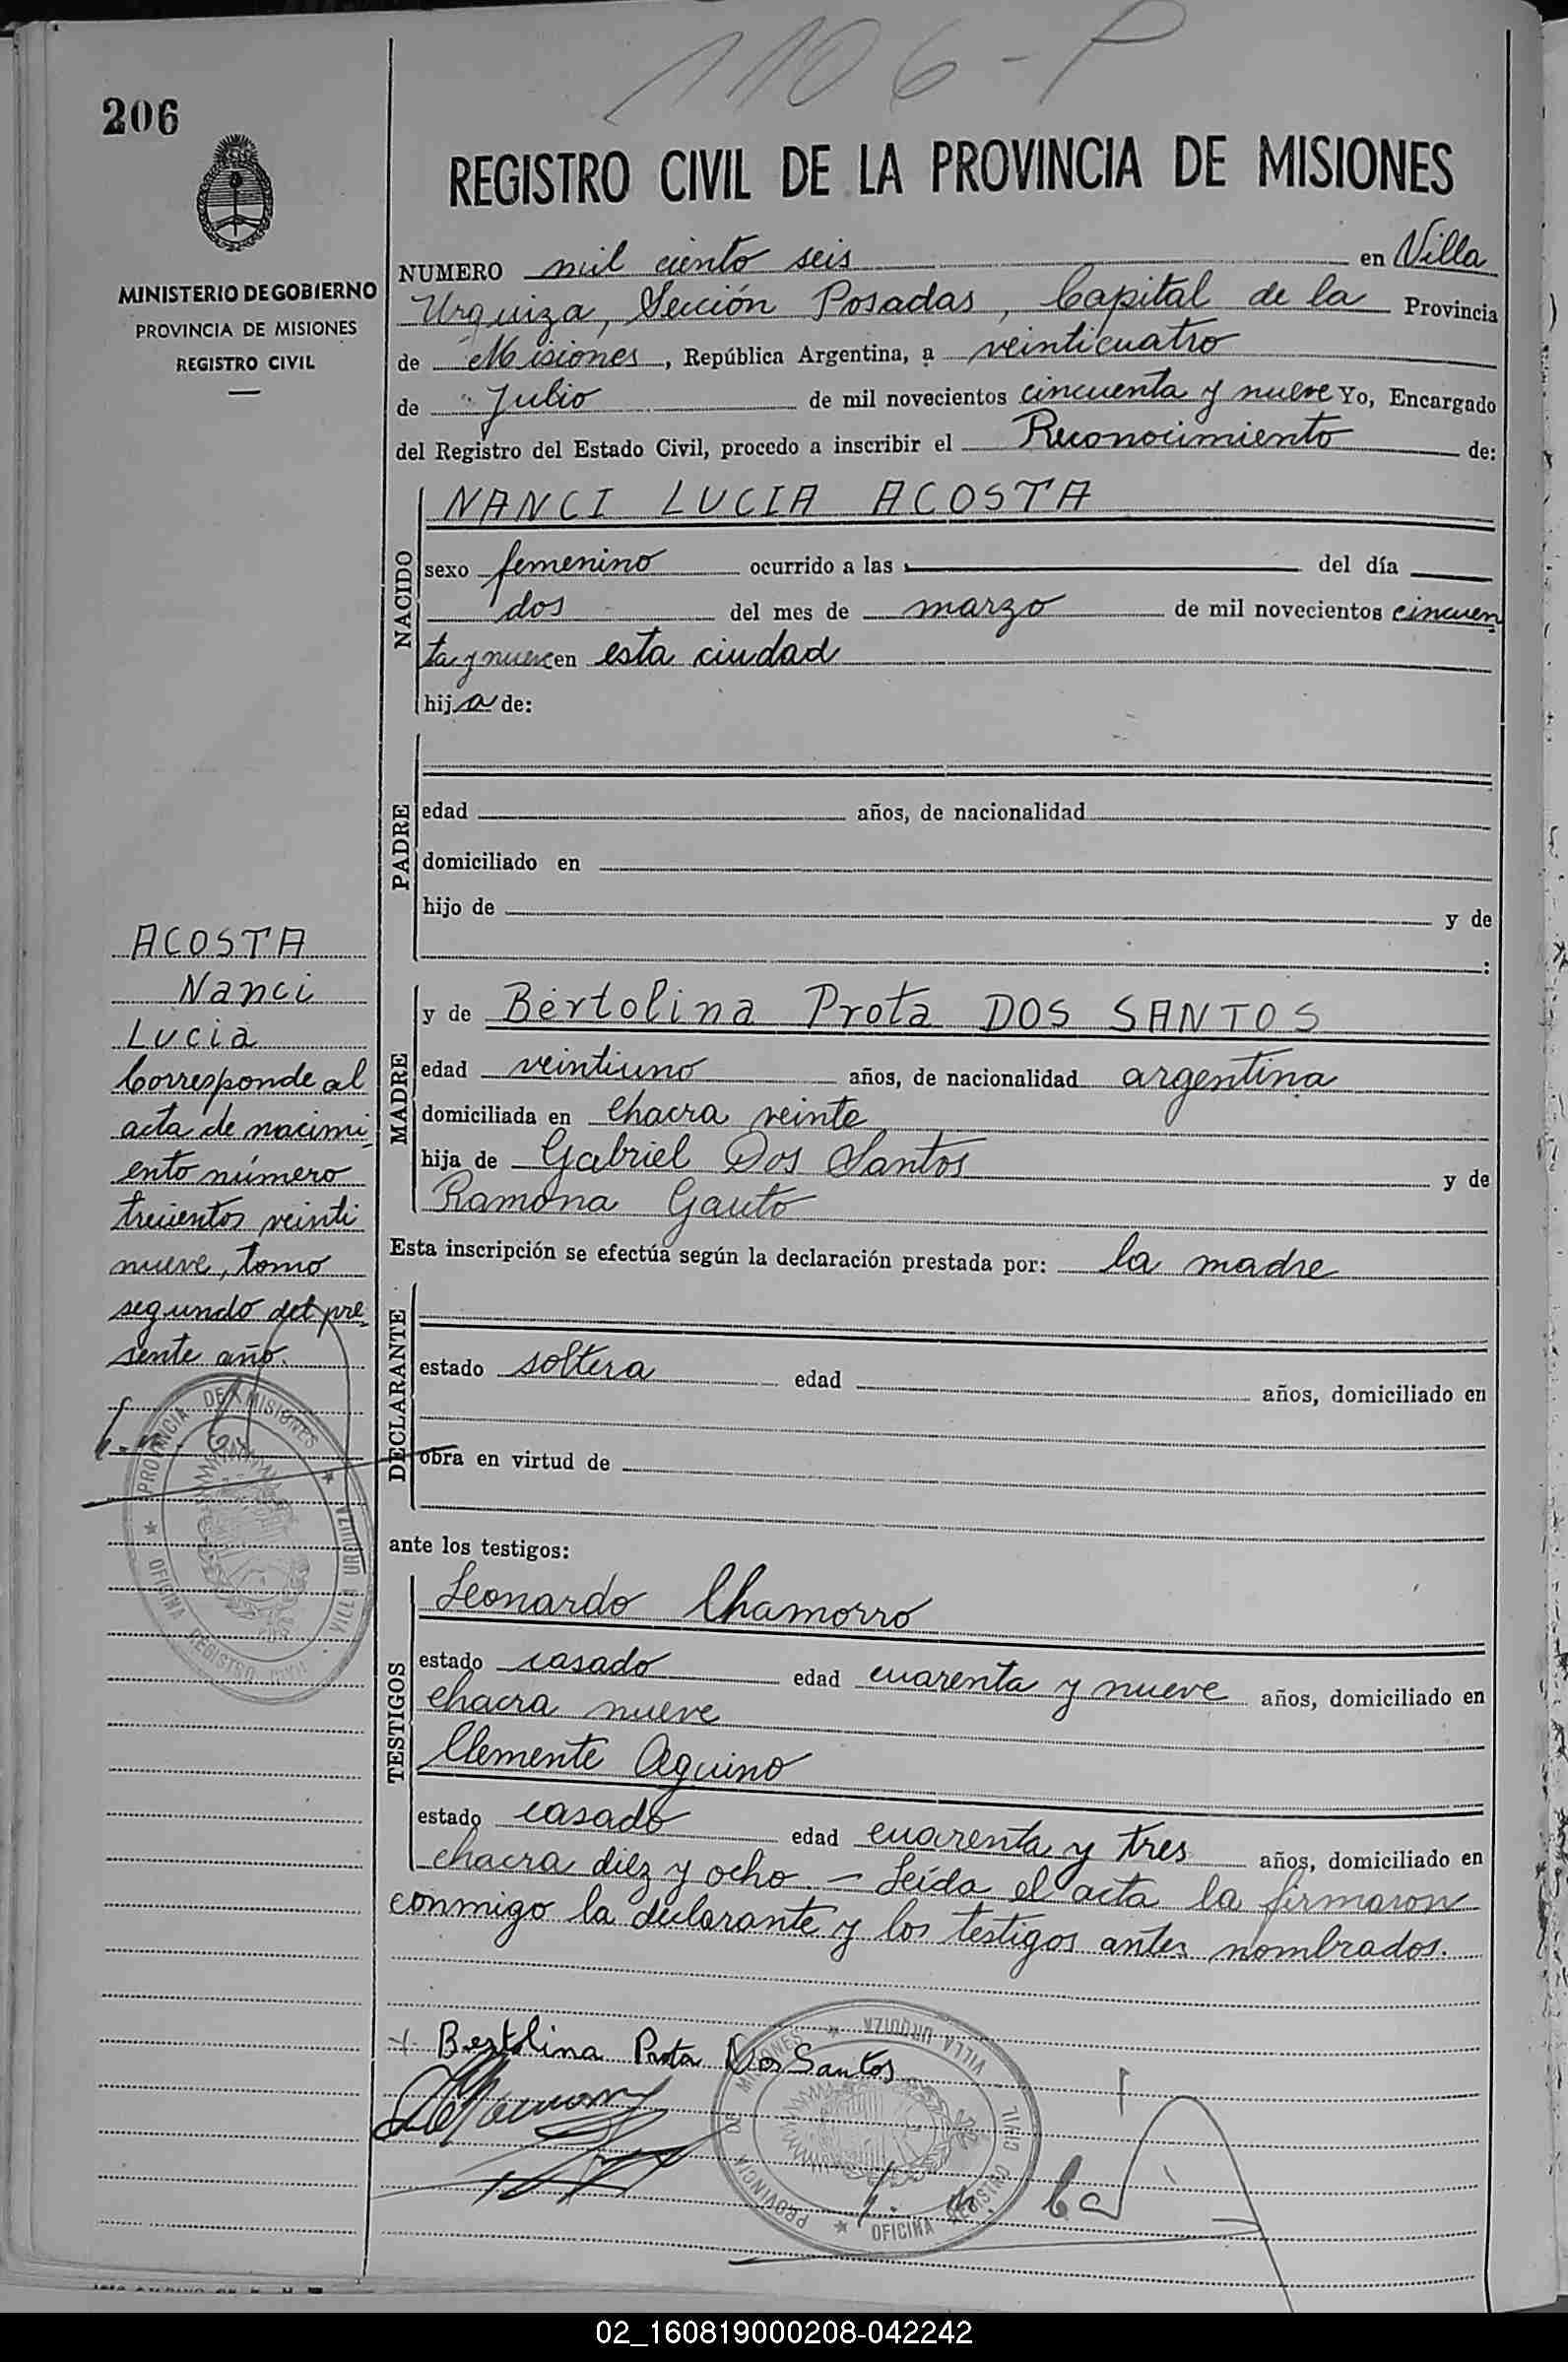 1106-P
206
REGISTRO CIVIL DE LA PROVINCIA DE MISIONES
MINISTERIO DE GOBIERNO
PROVINCIA DE MISIONES
REGISTRO CIVIL
NUMERO mil ciento seis en Villa
Urquiza, Sección Posadas, Capital de la Provincia
de Misiones, República Argentina, a veinticuatro
de Julio de mil novecientos cincuenta y nueve Yo, Encargado
del Registro del Estado Civil, procedo a inscribir el Reconocimiento de:
NACIDO
NANCI LUCIA ACOSTA
sexo femenino ocurrido a las del día
dos del mes de marzo de mil novecientos cincuen
ta y nueve en esta ciudad
hija de:
PADRE
edad años, de nacionalidad
domiciliado en
hijo de y de
:
MADRE
y de Bertolina Prota DOS SANTOS
edad veintiuno años, de nacionalidad argentina
domiciliada en chacra veinte
hija de Gabriel Dos Santos y de
Ramona Gauto
Esta inscripción se efectúa según la declaración prestada por: la madre
DECLARANTE
estado soltera edad años, domiciliado en
obra en virtud de
ante los testigos:
TESTIGOS
Leonardo Chamorro
estado casado edad cuarenta y nueve años, domiciliado en
chacra nueve
Clemente Aquino
estado casado edad cuarenta y tres años, domiciliado en
chacra diez y ocho. - Leída el acta la firmaron
conmigo la declarante y los testigos antes nombrados.
Bertolina Prota Dos Santos
PROVINCIA DE MISIONES * VILLA URQUIZA
* OFICINA REGISTRO CIVIL
ACOSTA
Nanci
Lucia
Corresponde al
acta de nacimi-
ento número
trecientos veinti
nueve, tomo
segundo del pre-
sente año.
PROVINCIA DE MISIONES * VILLA URQUIZA
* OFICINA REGISTRO CIVIL
02_160819000208-042242